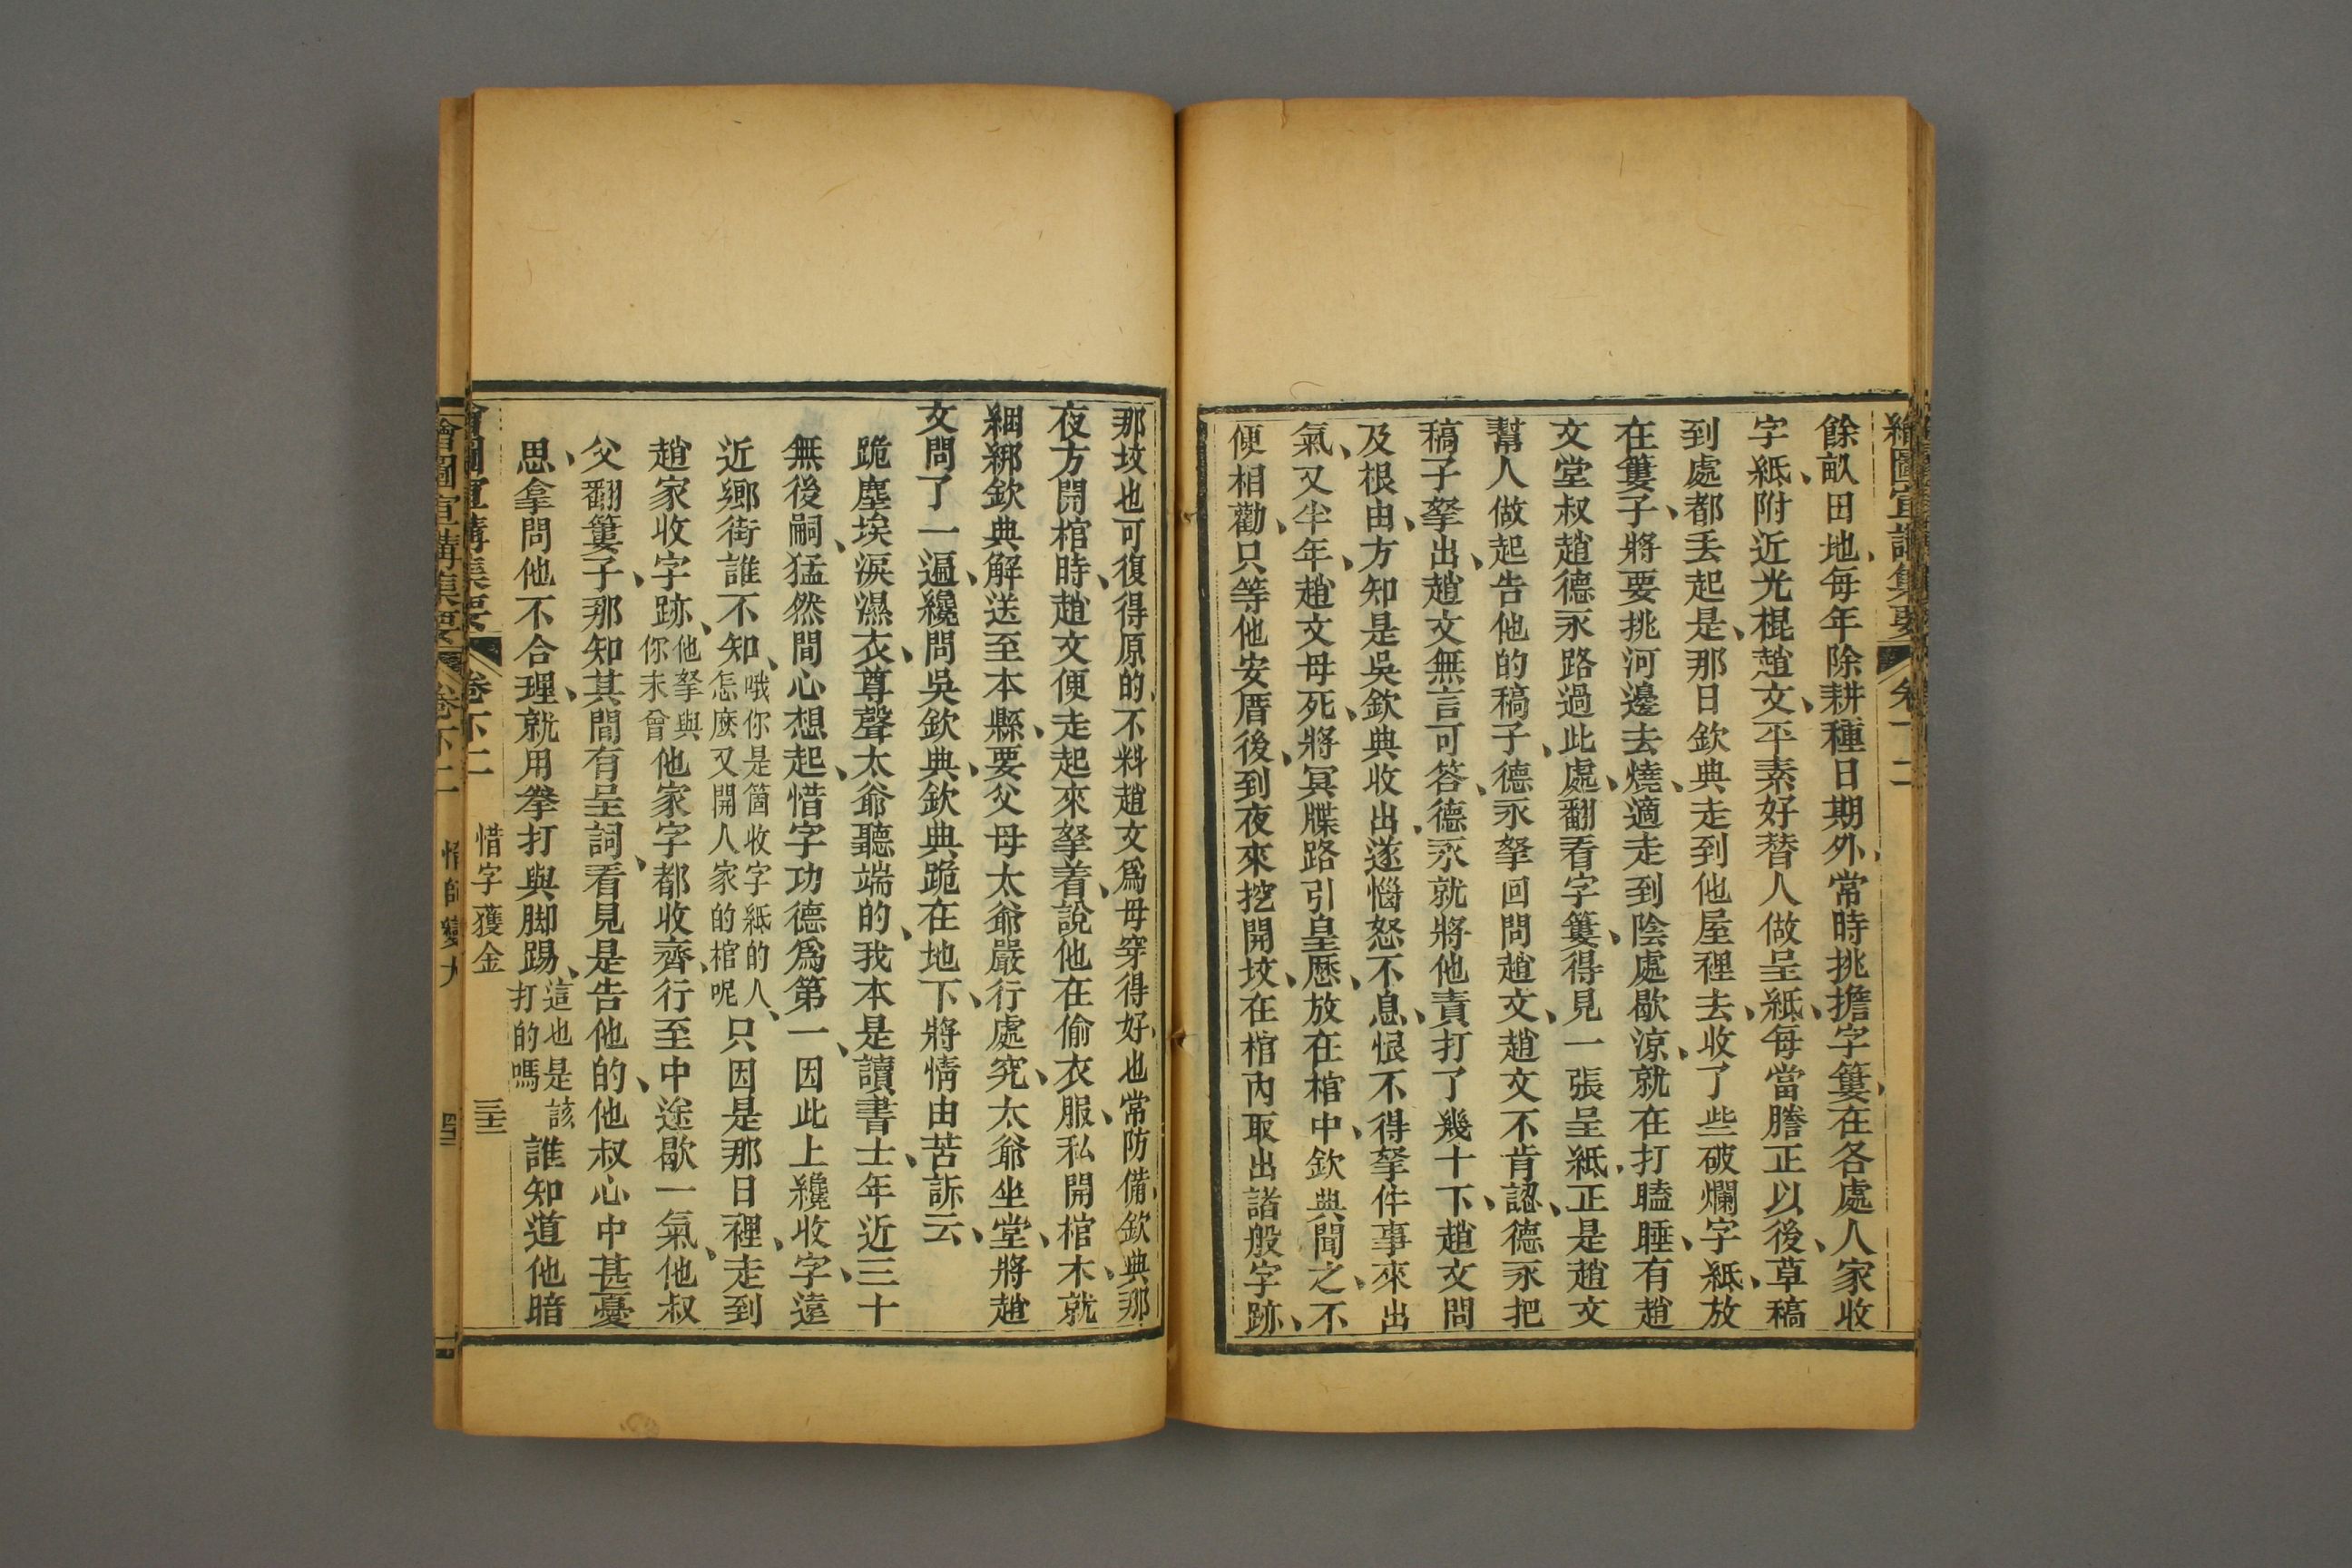 繪圖宣講集要 卷十二
餘畝田地、每年除耕種日期外、常時挑擔字簍、在各處人家收
字紙、附近光棍趙文、平素好替人做呈紙、每當謄正以後、草稿
到處都丟起是、那日欽典走到他屋裡去、收了些破爛字紙、放
在簍子、將要挑河邊去燒、適走到陰處歇涼、就在打瞌睡、有趙
文堂叔趙德永路過此處、翻看字簍、得見一張呈紙、正是趙文
幫人做起告他的稿子、德永拏回問趙文、趙文不肯認、德永把
稿子拏出、趙文無言可答、德永就將他責打了幾十下、趙文問
及根由、方知是吳欽典收出、遂惱怒不息、恨不得拏件事來出
氣、又半年、趙文母死、將冥牒路引皇歷、放在棺中、欽典聞之、不
便相勸、只等他安厝後、到夜來挖開坟、在棺內取出諸般字跡、
那坟也可復得原的、不料趙文爲母穿得好、也常防備、欽典那
夜方開棺時、趙文便走起來拏着、說他在偷衣服、私開棺木、就
綑綁欽典解送至本縣、要父母太爺嚴行處究、太爺坐堂、將趙
文問了一遍、纔問吳欽典、欽典跪在地下、將情由苦訴云、
跪塵埃淚濕衣、尊聲太爺聽端的、我本是讀書士、年近三十
無後嗣、猛然間心想起、惜字功德爲第一、因此上纔收字、遠
近鄉街誰不知、哦你是箇收字紙的人、怎麽又開人家的棺呢 只因是那日裡、走到
趙家收字跡、他拏與你未曾 他家字都收齊、行至中途歇一氣、他叔
父翻簍子、那知其間有呈詞、看見是告他的、他叔心中甚憂
思、拿問他不合理、就用拳打與脚踢、這也是該打的嗎 誰知道他暗
會圖宣講集要 卷十二 惜字獲金 三十三
會圖宣講集要 卷十二